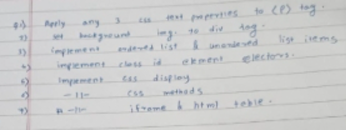 Q1) Apply any 3 css text properties to (P) tag.
2) set background img. to div tag.
3) impement ordered list & unordered list items
4) impement class id element electors.
5) impement css display
6) -11- css methods
7) -11- iframe & html table.